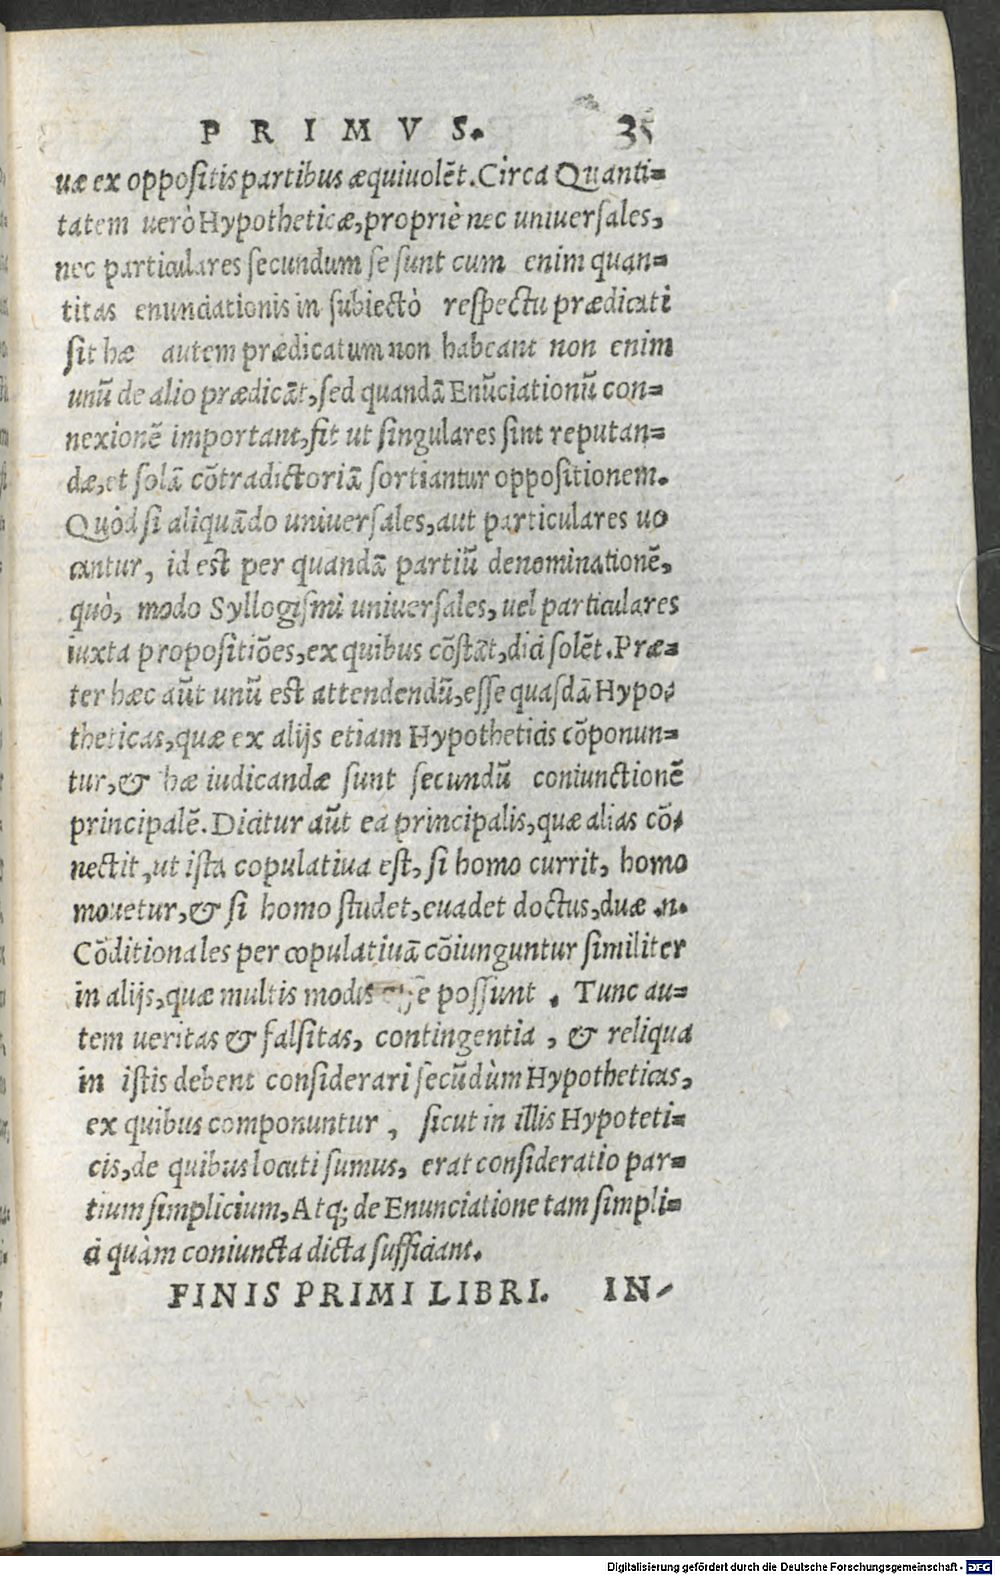 PRIMVS. 35
uæ ex oppositis partibus æquiuolẽt. Circa Quanti=
tatem uerò Hypotheticæ, propriè nec uniuersales,
nec particulares secundum se sunt cum enim quan=
titas enunciationis in subiectò respectu prædicati
sit hæ autem prædicatum non habeant non enim
unũ de alio prædicãt, sed quandã Enũciationũ con=
nexionẽ important, fit ut singulares sint reputan=
dæ, et solã cõtradictoriã sortiantur oppositionem.
Quòd si aliquãdo uniuersales, aut particulares uo
cantur, id est per quandã partiũ denominationẽ,
quò, modo Syllogismi uniuersales, uel particulares
iuxta propositiões, ex quibus cõstãt, dici solẽt. Præ=
ter hæc aũt unũ est attendendũ, esse quasdã Hypo=
theticas, quæ ex alijs etiam Hypotheticis cõponun=
tur, & hæ iudicandæ sunt secundũ coniunctionẽ
principalẽ. Dicitur aũt ea principalis, quæ alias cõ=
nectit, ut ista copulatiua est, si homo currit, homo
mouetur, & si homo studet, euadet doctus, duæ .n.
Cõditionales per copulatiuã cõiunguntur similiter
in alijs, quæ multis modis possunt. Tunc au=
tem ueritas & falsitas, contingentia, & reliqua
in istis debent considerari secũdùm Hypotheticas,
ex quibus componuntur, sicut in illis Hypoteti=
cis, de quibus locuti sumus, erat consideratio par=
tium simplicium, Atq; de Enunciatione tam simpli=
ci quàm coniuncta dicta sufficiant.
FINIS PRIMI LIBRI. IN=
Digitalisierung gefördert durch die Deutsche Forschungsgemeinschaft - DFG